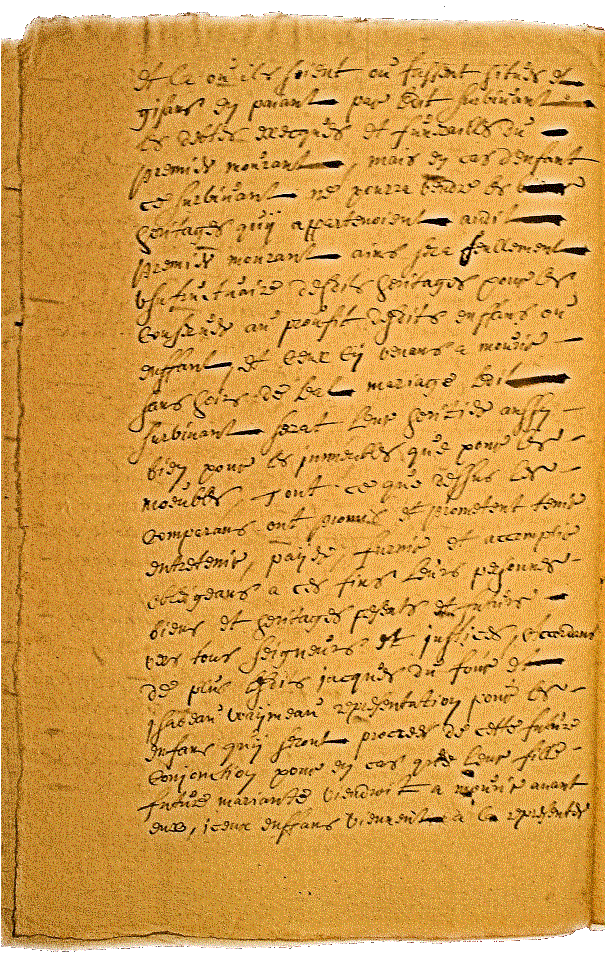 et la ou ilz soient ou fussent situés et
gisans en paiant par ledit survivant
les debtes obsecques et funerailles du
premier mourant, mais en cas d'enfant
ce survivant ne pourra vendre les
heritages quy appartenoient audit
premier mourant ains sera seullement
usufructuaire desdits heritages pour les
conserver au proufit desdits enffans ou
enffant, et ceux cy venans a mourir
sans hoirs de leal mariage ledit
survivant serat leur heritier aussy
bien pour les immeubles que pour les
moeubles, Tout ce que dessus les
comparans ont promis et prometent tenir
entretenir, payer, furnir et accomplir
obligeans a ces fins leurs personnes
biens et heritages presents et futurs
vers tous seigneurs et justices, accordans
de plus lesdits jacques du four et
ysabeau waymeau representation pour les
enfans quy seront procrees de cette future
Conjonction pour en cas que leur fille
future mariante viendroit a mourir avant
eux, iceux enffans viennent a la representer